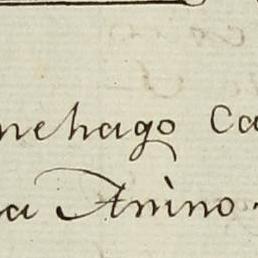 nehago Ca
a Anìno.